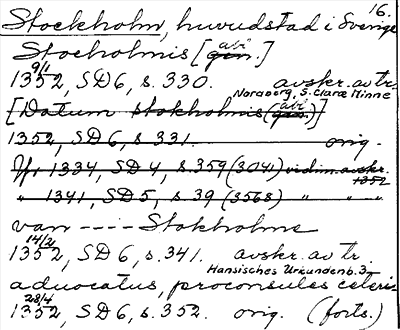 16.
Stockholm, huvudstad i Sverige
Stocholmis [gen. abl.]
9/1
1352, SD6, s. 330. avskr. av tr.
Noraberg, S. Claræ Minne
[Datum stokholmis (gen. abl.)]
1352, SD6, s. 331. orig.
Yr 1334, SD4, s. 359 (3041) vidim. avskr.
1352
" 1341, SD5, s. 39 (3568) " "
van ---- Stokholms
14/2
1352, SD6, s. 341. avskr. av tr.
Hansisches Urkundenb. 3
aduocatus, proconsules ceteris
28/4
1352, SD6, s. 352. orig. (forts.)